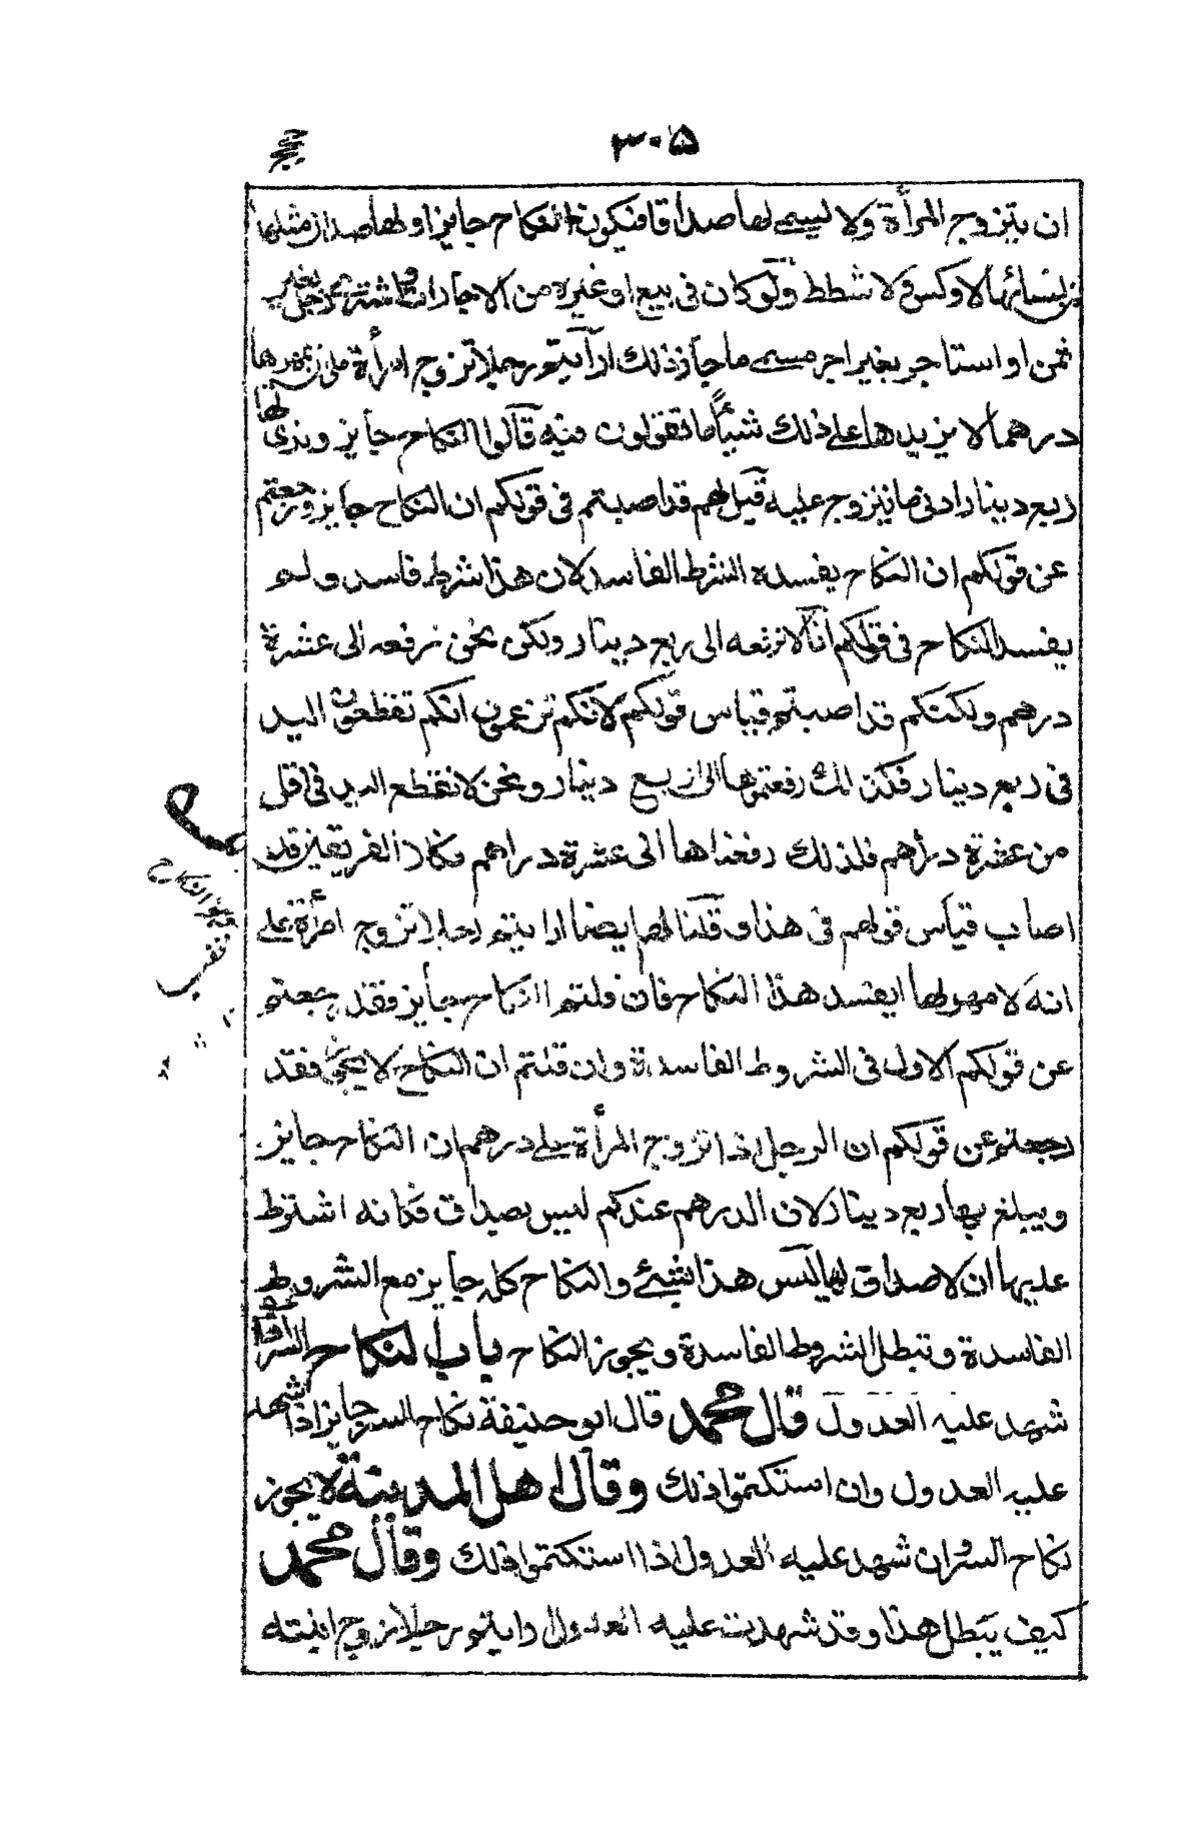 ٣٠٥
ان يتزوج المرأة ولا يسمى لها صداقا فيكون النكاح جايزا ولها صداق مثلها
من نسائها لا وكس ولا شطط ولو كان فى بيع او غيره من الاجارات فاشترى رجل بغير
ثمن او استاجر بغير اجر مسمى ما جاز ذلك ارأيتم رجلا تزوج امرأة على ان يمهرها
درهما لا يزيدها على ذلك شيئا ما تقولون فيه قالوا النكاح جايز ونرى لها
ربع دينار ادنى ما يتزوج عليه قيل لهم قد اصبتم فى قولكم ان النكاح جايز ورجعتم
عن قولكم ان النكاح يفسده الشرط الفاسد لان هذا شرط فاسد ولم
يفسد النكاح فى قولكم انا لا نرفعه الى ربع دينار ولكن نحن نرفعه الى عشرة
درهم ولكنكم قد اصبتم قياس قولكم لانكم تزعمون انكم تقطعون اليد
فى ربع دينار فكذلك رفعتموها الى ربع دينار ونحن لا نقطع اليد فى اقل
من عشرة دراهم فلذلك رفعناها الى عشرة دراهم فكلا الفريقين قد
اصاب قياس قولهم فى هذا وقلنا لهم ايضا ارايتم رجلا تزوج امرأة على
انه لا مهر لها ايفسد هذا النكاح فان قلتم النكاح جايز فقد رجعتم
عن قولكم الاول فى الشروط الفاسدة وان قلتم ان النكاح لا يجوز فقد
رجعتم عن قولكم ان الرجل اذا تزوج المرأة على درهم ان النكاح جايز
ويبلغ بها ربع دينار لان الدرهم عندكم ليس بصداق فكانه اشترط
عليها ان لا صداق لها ليس هذا بشئ والنكاح كله جايز مع الشروط
الفاسدة وتبطل الشروط الفاسدة ويجوز النكاح باب النكاح السر اذا
شهد عليه العدول قال محمد قال ابو حنيفة نكاح السر جايز اذا شهد
عليه العدول وان استكتموا ذلك وقال اهل المدينة لا يجوز
نكاح السر وان شهد عليه العدول اذا استكتموا ذلك وقال محمد
كيف يبطل هذا وقد شهدت عليه العدول ارايتم رجلا زوج ابنته